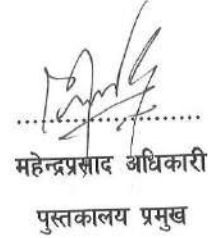 महेन्द्रप्रसाद अधिकारी
पुस्तकालय प्रमुख